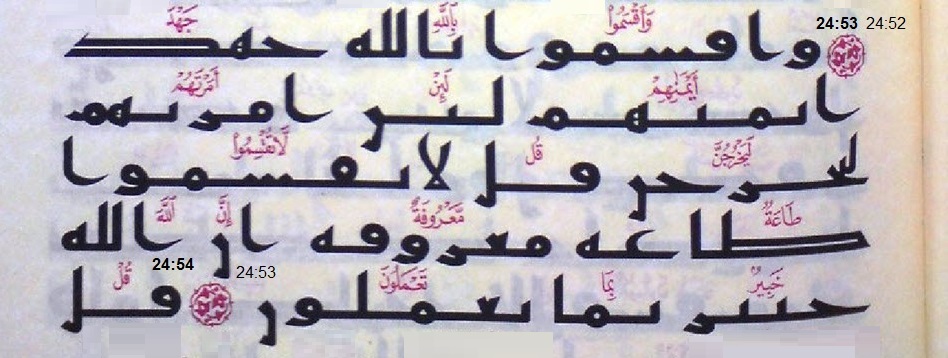 24:53 24:52
وَأَقْسَمُوا۟ بِٱللَّهِ جَهْدَ
واقسموا بالله جهد
أَيْمَٰنِهِمْ لَئِنْ أَمَرْتَهُمْ
ايمنهم لين امرتهم
لَيَخْرُجُنَّ قُل لَّا تُقْسِمُوا۟
ليخرجن قل لا تقسموا
طَاعَةٌ مَّعْرُوفَةٌ إِنَّ ٱللَّهَ
طاعه معروفه ان الله
24:54 24:53
خَبِيرٌۢ بِمَا تَعْمَلُونَ قُلْ
خبير بما تعملون قل